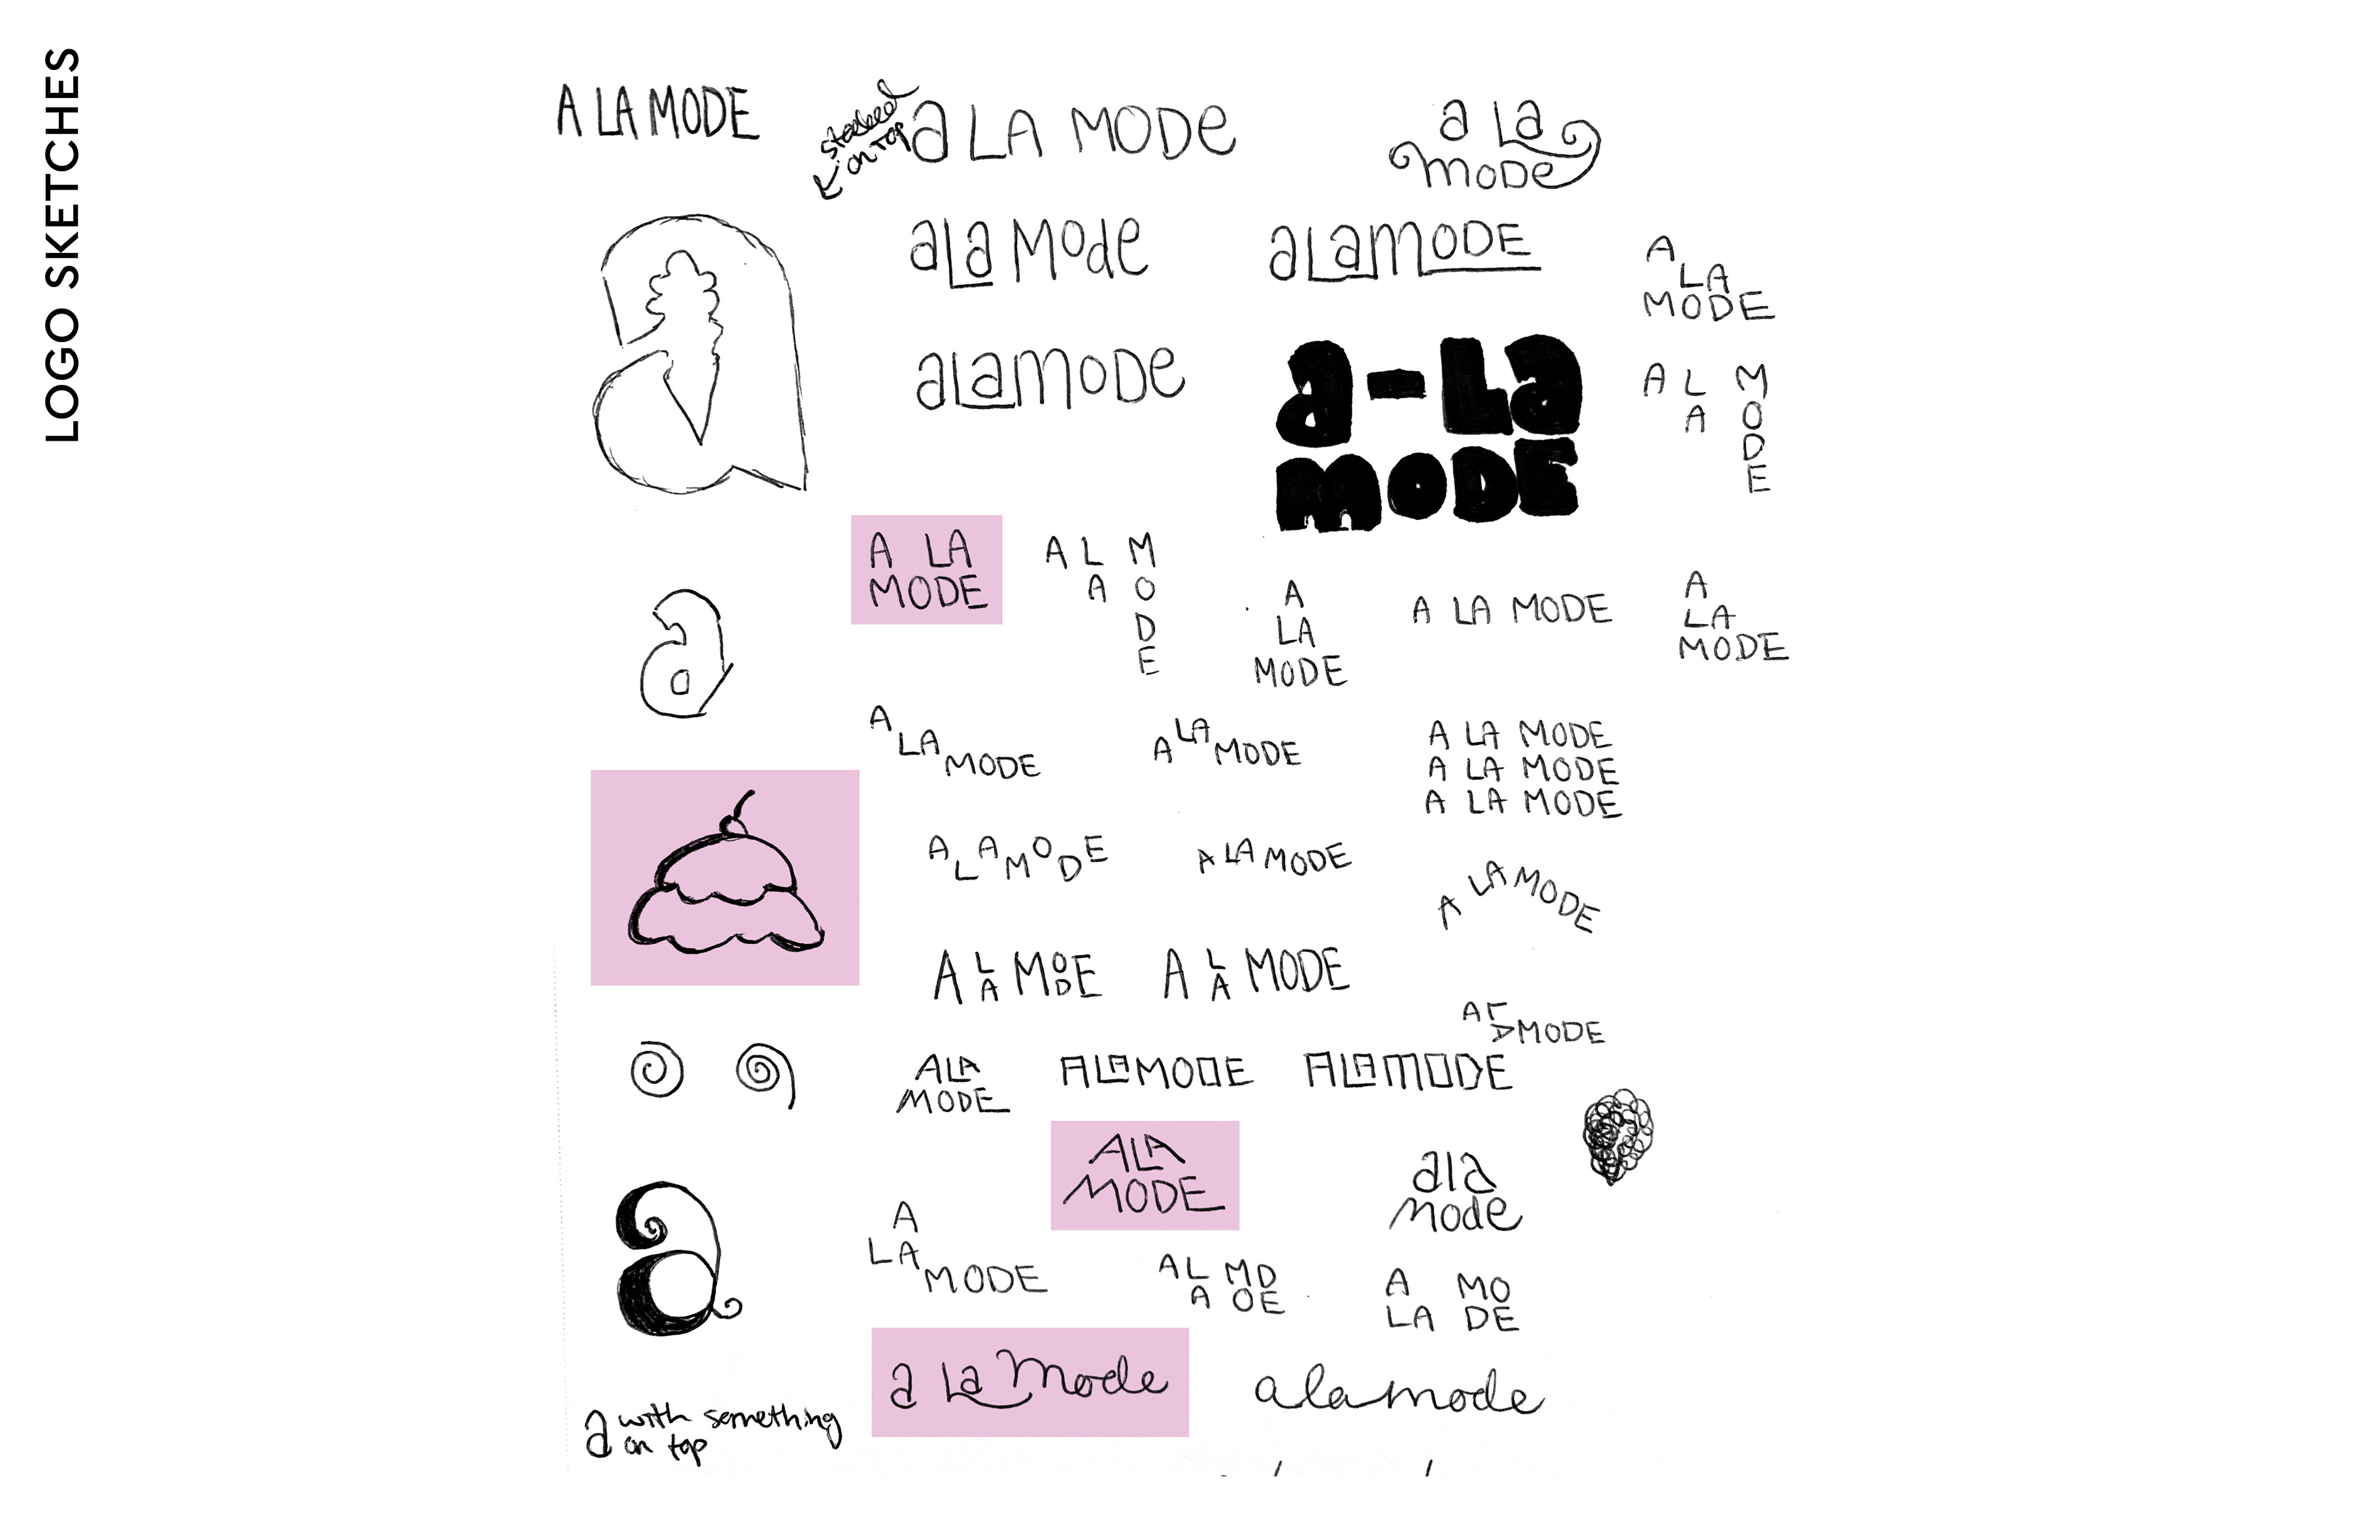 LOGO SKETCHES
A LA MODE
stacked
on top
a LA MODe
a La
mode
aLa Mode
aLamODE
A
LA
MODE
aLamoDe
a-La
mODE
A L M
A O
D
E
A LA
MODE
A L M
A O
D
E
A
LA
MODE
A LA MODE
A
LA
MODE
A
LA
MODE
A LA MODE
A LA MODE
A LA MODE
A LA MODE
A LA MODE
A LA MODE
A LA MODE
A LA MODE
A LA MODE
ALA
MODE
ALAMODE
ALAMODE
A LA MODE
ALA
MODE
ala
mode
A
LA
MODE
AL MD
A OE
A MO
LA DE
a La Mode
alamode
a with something
on top
a
a
a